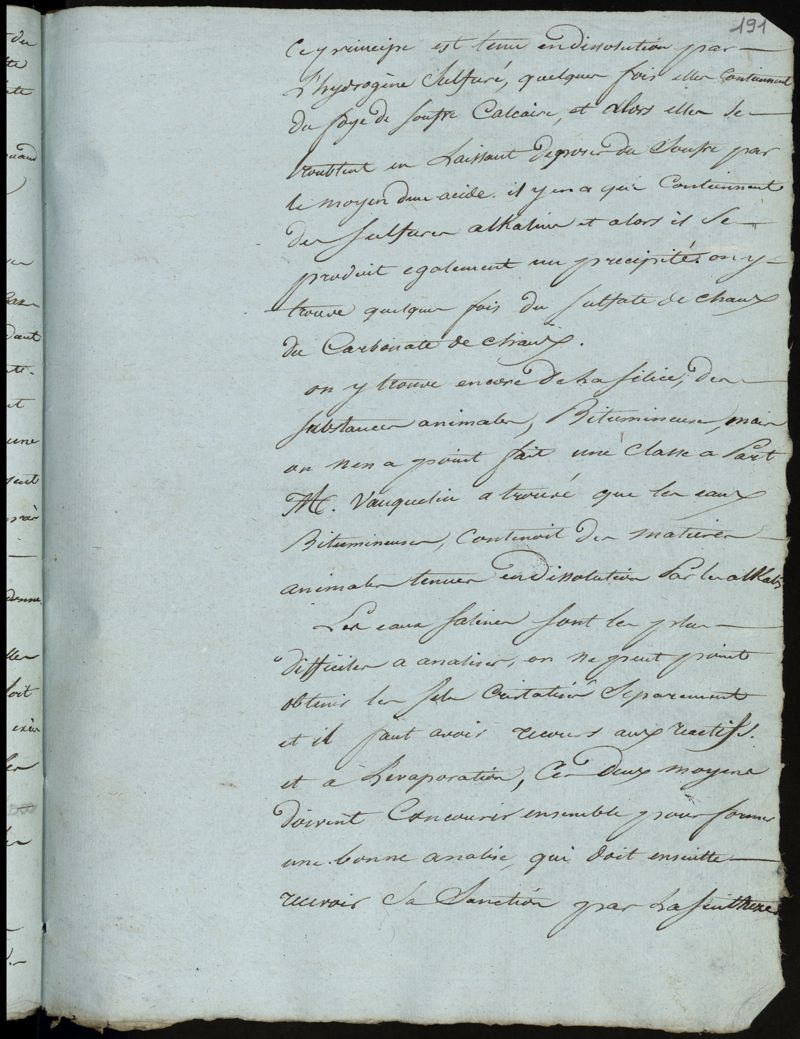 191
Ce principe est tenu en dissolution par
L'hydrogène Sulfuré, quelque fois elles Contiennent
du foye de soufre Calcaire, et alors elles se
troublent en Laissant deposer du Soufre par
le moyen d'un acide. il y en a qui Contiennent
des sulfures alkalins et alors il se
produit egalement un precipité. on y
trouve quelque fois du sulfate de chaux
du Carbonate de chaux.
on y trouve encore de La silice, des
substances animales, Bitumineuses, mais
on n'en a point fait une Classe a Part
M. Vauquelin a trouvé que les eaux
Bitumineuses, Contenoit des matieres
animales tenues en dissolution Par les alkalis
Les eaux salines sont les plus
difficiles a analiser, on ne peut point
obtenir les sels Cristalisés Separement
et il faut avoir recours aux reactifs.
et à L'evaporation, Ces deux moyens
doivent Concourir ensemble pour former
une bonne analise, qui doit ensuitte
recevoir Sa Sanction par La sinthese